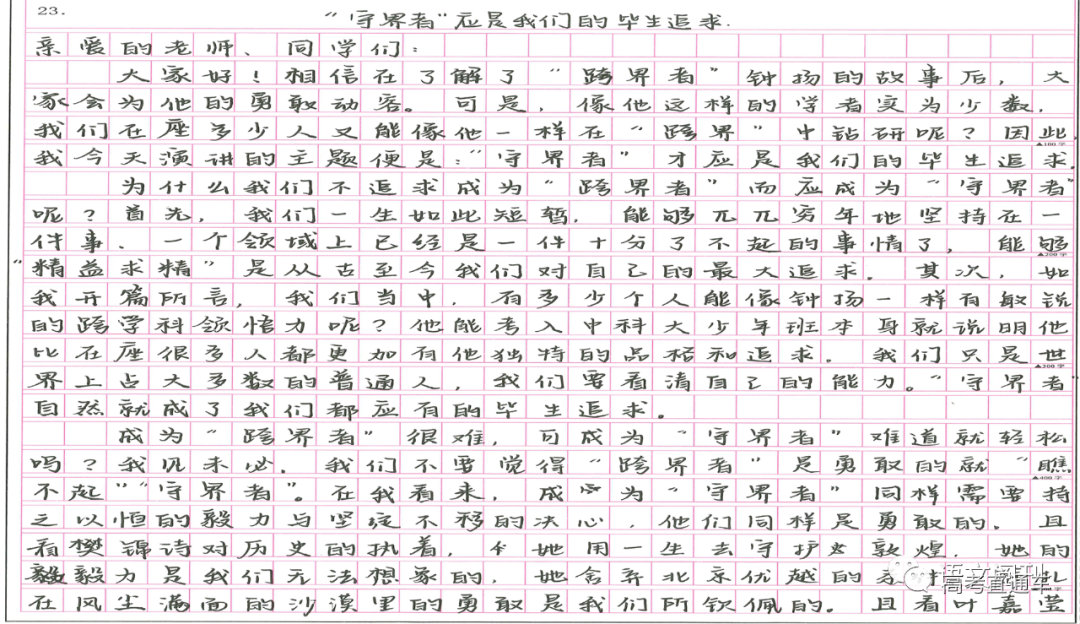 23.
“守界者”应是我们的毕生追求.
亲爱的老师、同学们：
大家好！相信在了解了“跨界者”钟扬的故事后，大
家会为他的勇敢动容。可是，像他这样的学者实为少数，
我们在座多少人又能像他一样在“跨界”中钻研呢？因此，
▲100字
我今天演讲的主题便是：“守界者”才应是我们的毕生追求.
为什么我们不追求成为“跨界者”而应成为“守界者”
呢？首先，我们一生如此短暂，能够兀兀穷年地坚持在一
件事、一个领域上已经是一件十分了不起的事情了，能够
▲200字
“精益求精”是从古至今我们对自己的最大追求。其次，如
我开篇所言，我们当中，有多少个人能像钟扬一样有敏锐
的跨学科领悟力呢？他能考入中科大少年班本身就说明他
比在座很多人都更加有他独特的品格和追求。我们只是世
▲300字
界上占大多数的普通人，我们要看清自己的能力。“守界者”
自然就成了我们都应有的毕生追求。
成为“跨界者”很难，可成为“守界者”难道就轻松
吗？我见未必。我们不要觉得“跨界者”是勇敢的就“瞧
▲400字
不起”“守界者”。在我看来，成为“守界者”同样需要持
之以恒的毅力与坚定不移的决心，他们同样是勇敢的。且
看樊锦诗对历史的执着，她用一生去守护敦煌，她的
毅力是我们无法想象的，她舍弃北京优越的
在风尘满面的沙漠里的勇敢是我们所钦佩的。且看叶嘉莹
高考直通车